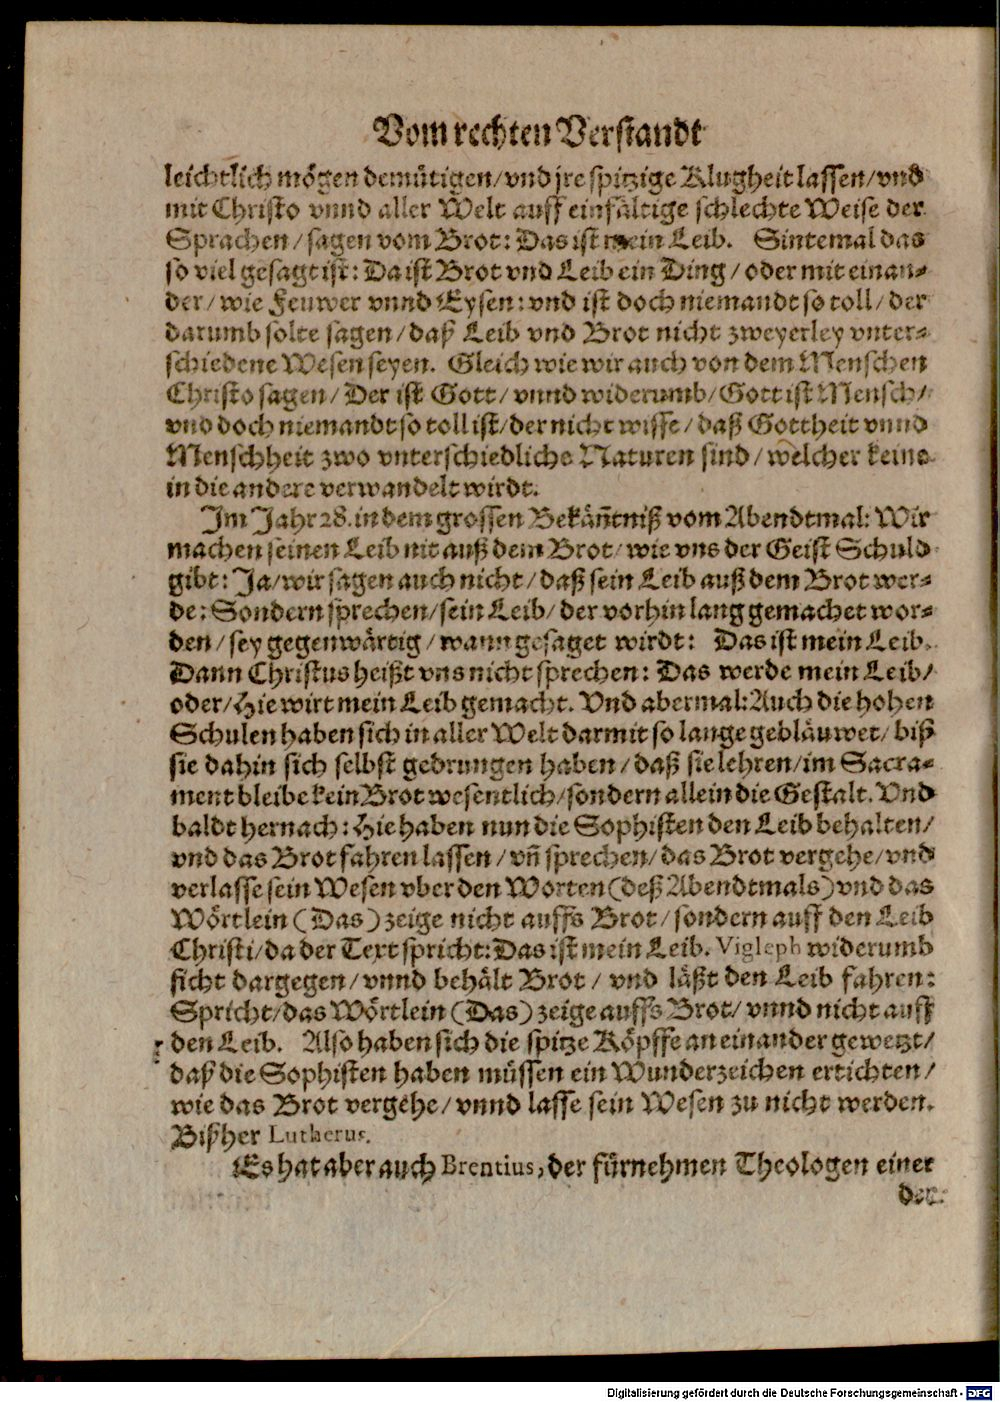 Vom rechten Verstandt
leichtlich mögen demütigen/ vnd jre spitzige Klugheit lassen/ vnd
mit Christo vnnd aller Welt auff einfältige schlechte Weise der
Sprachen/ sagen vom Brot: Das ist mein Leib. Sintemal das
so viel gesagt ist: Da ist Brot vnd Leib ein Ding/ oder mit einan-
der/ wie Feuwer vnnd Eysen: vnd ist doch niemandt so toll/ der
darumb solte sagen/ daß Leib vnd Brot nicht zweyerley vnter-
schiedene Wesen seyen. Gleich wie wir auch von dem Menschen
Christo sagen/ Der ist Gott/ vnnd widerumb/ Gott ist Mensch/
vnd doch niemandt so toll ist/ der nicht wisse/ daß Gottheit vnnd
Menschheit zwo vnterschiedliche Naturen sind/ welcher keine
in die andere verwandelt wirdt.
Im Jahr 28. in dem grossen Bekäñtniß vom Abendtmal: Wir
machen seinen Leib nit auß dem Brot/ wie vns der Geist Schuld
gibt: Ja/ wir sagen auch nicht/ daß sein Leib auß dem Brot wer-
de: Sondern sprechen/ sein Leib/ der vorhin lang gemachet wor-
den/ sey gegenwärtig/ wann gesaget wirdt: Das ist mein Leib.
Dann Christus heißt vns nicht sprechen: Das werde mein Leib/
oder/ Hie wirt mein Leib gemacht. Vnd abermal: Auch die hohen
Schulen haben sich in aller Welt darmit so lange gebläuwet/ biß
sie dahin sich selbst gedrungen haben/ daß sie lehren/ im Sacra-
ment bleibe kein Brot wesentlich/ sondern allein die Gestalt. Vnd
baldt hernach: Hie haben nun die Sophisten den Leib behalten/
vnd das Brot fahren lassen/ vñ sprechen/ das Brot vergehe/ vnd
verlasse sein Wesen vber den Worten (deß Abendtmals) vnd das
Wörtlein (Das) zeige nicht auffs Brot/ sondern auff den Leib
Christi/ da der Text spricht: Das ist mein Leib. Vigleph widerumb
ficht dargegen/ vnnd behält Brot/ vnd läßt den Leib fahren:
Spricht/ das Wörtlein (Das) zeige auffs Brot/ vnnd nicht auff
den Leib. Also haben sich die spitze Köpffe an einander gewetzt/
daß die Sophisten haben müssen ein Wunderzeichen ertichten/
wie das Brot vergehe/ vnnd lasse sein Wesen zu nicht werden.
Bißher Lutherus.
Es hat aber auch Brentius, der fürnehmen Theologen einer
der
Digitalisierung gefördert durch die Deutsche Forschungsgemeinschaft - DFG